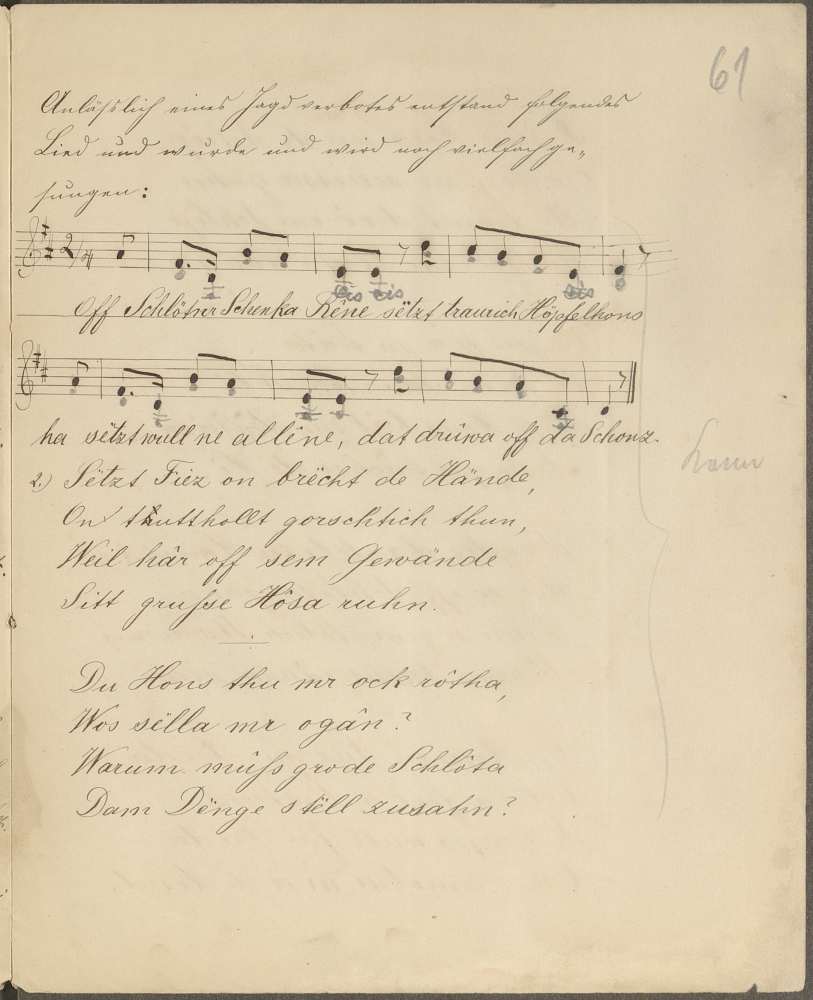 61
Anlässlich eines Jagdverbotes entstand folgendes
Lied und wurde und wird noch vielfach ge-
sungen:
2/4
cis cis cis
Off Schlötner Schenka Rêne sëtzt traurich Höpfelhons
ha sëtzt wull ne allêne, dat drüwa off da Schonz.
2.) Sëtzt Fiez on brëcht de Hände,
On thutt hollt gorschtich thun,
Weil hâr off sem Gewände
Sitt grusse Hôsa ruhn.
Du Hons thu mr ock rôtha,
Wos sëlla mr ogân?
Warum müss grode Schlöta
Dam Dënge stëll zusahn?